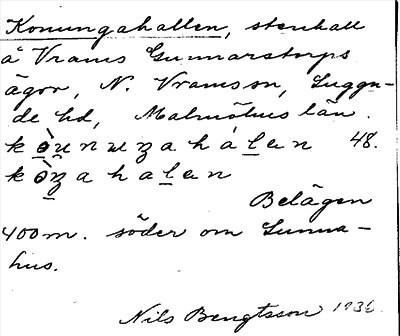 Konungahallen, stenhall
å Vrams Gunnarstorps
ägor, N. Vramson, Luggu-
de hd, Malmöhus län.
kòunuŋahálen 48.
kòŋahalen
Belägen
400 m. söder om Sunna-
hus.
Nils Bengtsson 1936